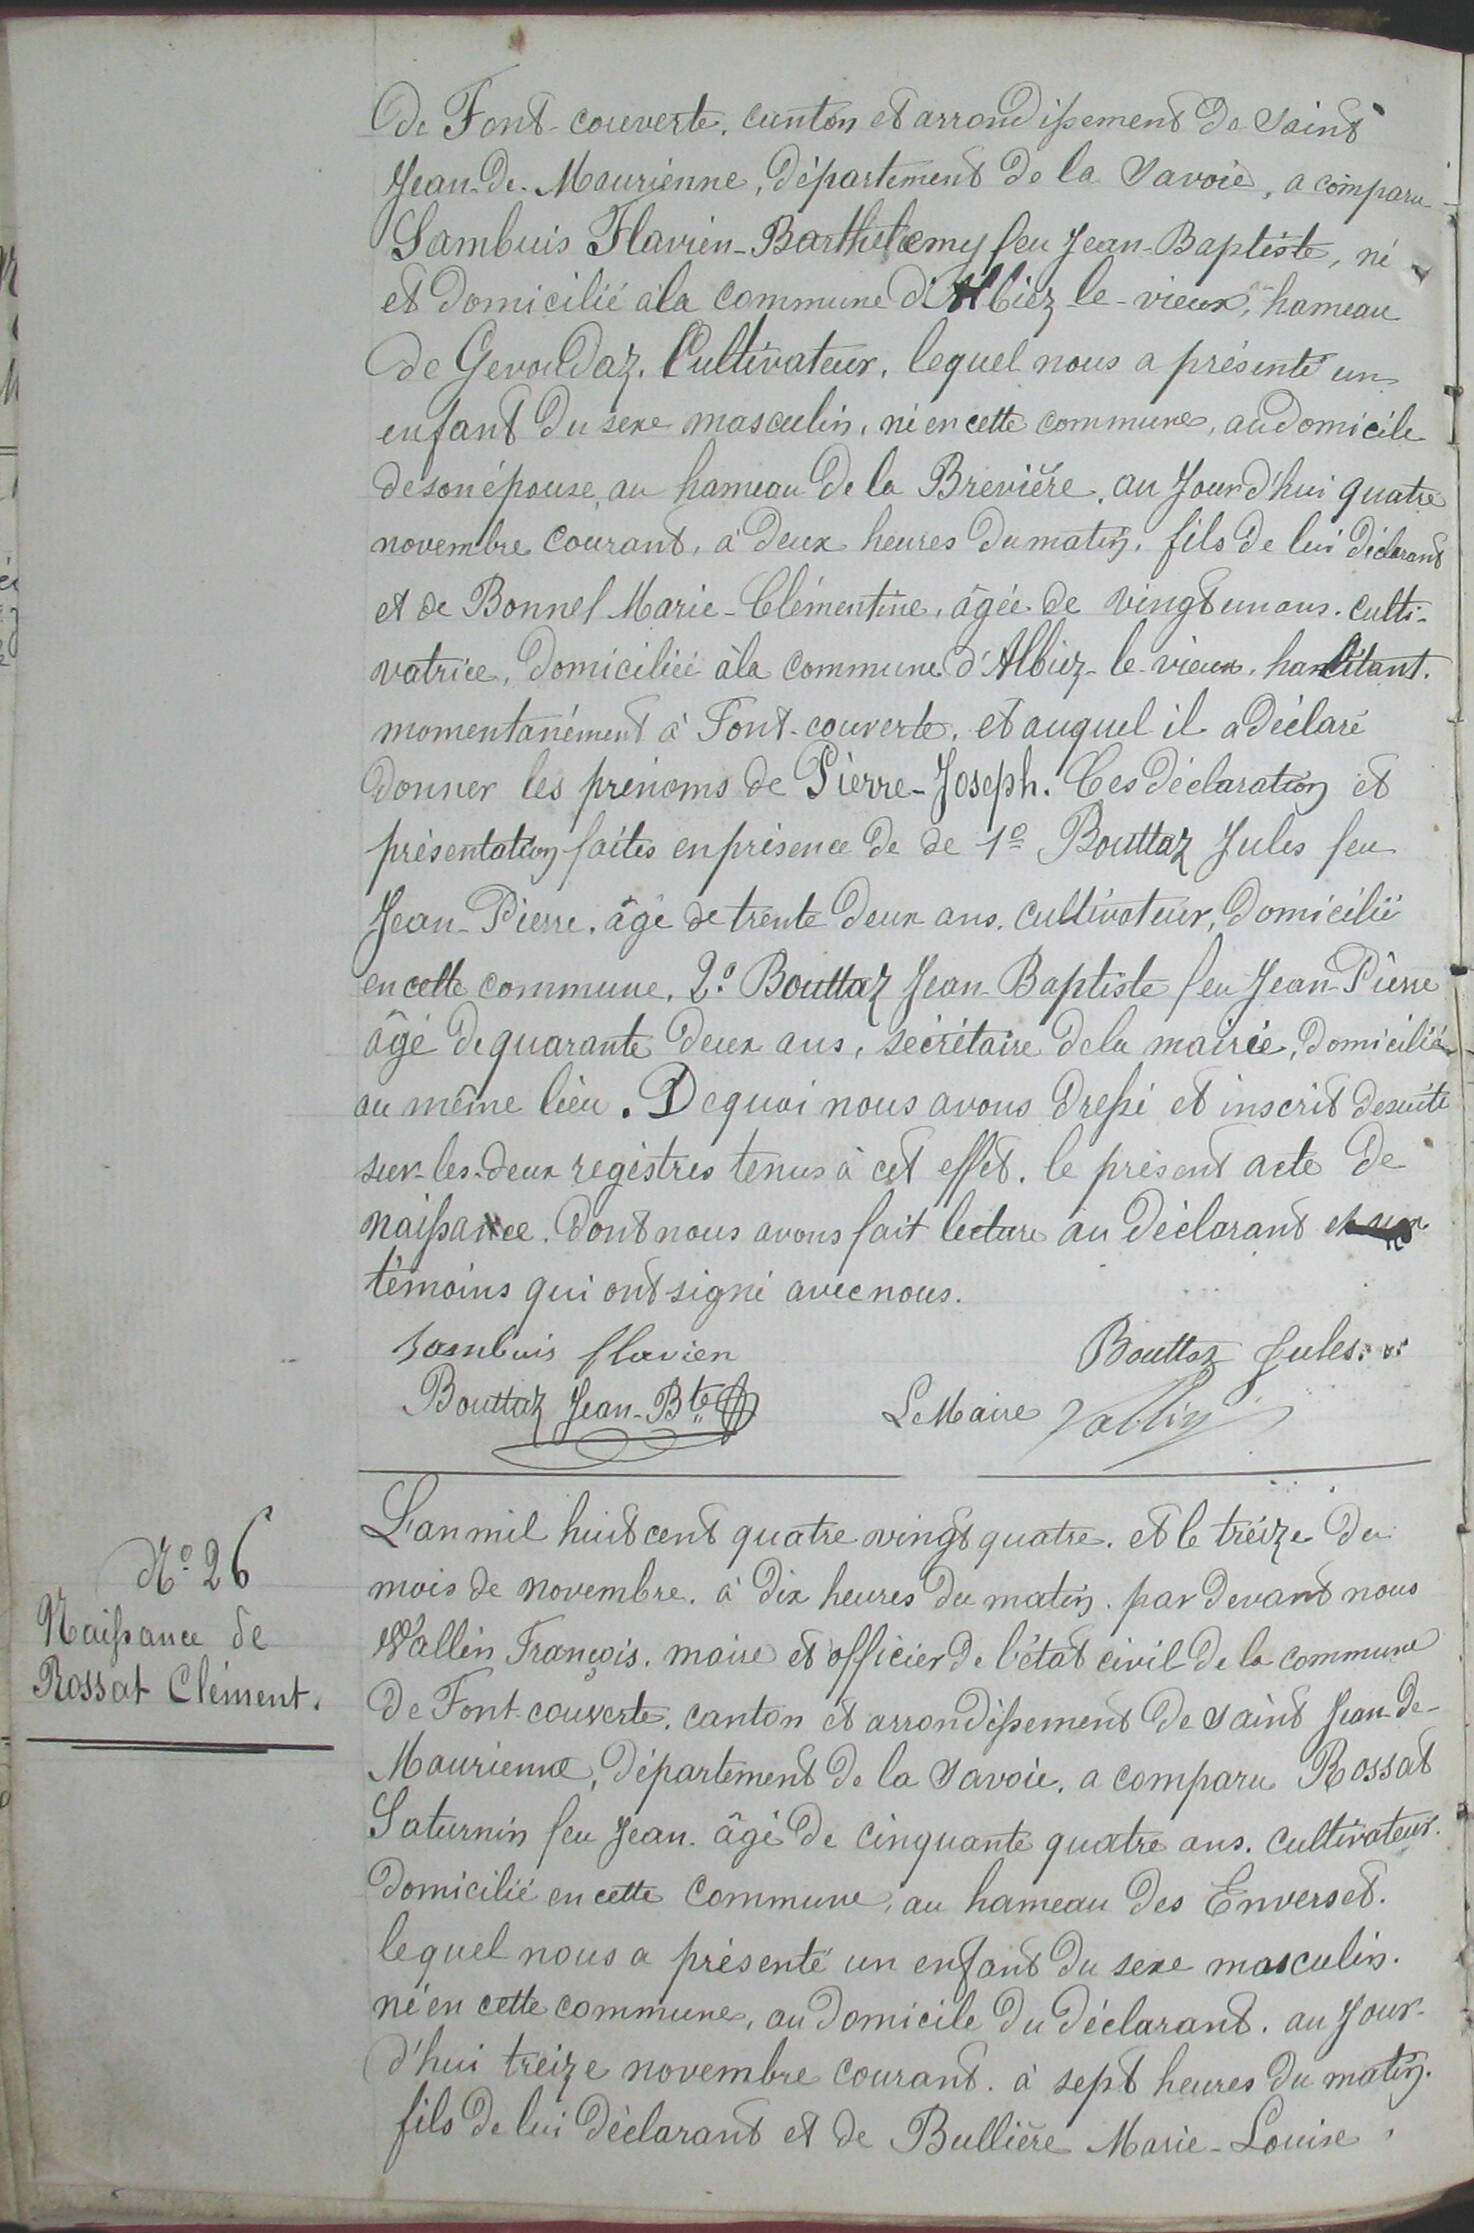 de Font-couverte, canton et arrondissement de Saint
Jean-de-Maurienne, département de la Savoie, a comparu
Sambuis Flavien-Barthelemy feu Jean-Baptiste, né
et domicilié à la commune d'Albiez-le-vieux, hameau
de Gevoudaz, Cultivateur, lequel nous a présenté un
enfant du sexe masculin, né en cette commune, au domicile
de son épouse, au hameau de la Brevière, au Jourd'hui quatre
novembre courant, à deux heures du matin, fils de lui déclarant
et de Bonnel Marie-Clémentine, âgée de vingt un ans, culti-
vatrice, domiciliée à la commune d'Albiez-le-vieux, habitant
momentanément à Font-couverte, et auquel il a déclaré
donner les prénoms de Pierre-Joseph. Ces déclaration et
présentation faites en présence de de 1º Bouttaz Jules feu
Jean-Pierre, âgé de trente deux ans, cultivateur, domicilié
en cette commune, 2º Bouttaz Jean-Baptiste feu Jean-Pierre
âgé de quarante deux ans, secrétaire de la mairie, domicilié
au même lieu. De quoi nous avons dressé et inscrit de suite
sur les deux registres tenus à cet effet, le présent acte de
naissance, dont nous avons fait lecture au déclarant et aux
témoins qui ont signé avec nous.
Sambuis flavien Bouttaz Jules
Bouttaz Jean-Bte Le Maire Vallin
Nº 26
Naissance de
Rossat Clément.
L'an mil huit cent quatre vingt quatre, et le treize du
mois de novembre, à dix heures du matin, par devant nous
Vallin François, maire et officier de l'état civil de la commune
de Font-couverte, canton et arrondissement de Saint Jean-de-
Maurienne, département de la Savoie, a comparu Rossat
Saturnin feu Jean, âgé de cinquante quatre ans, cultivateur,
domicilié en cette commune, au hameau des Enverset,
lequel nous a présenté un enfant du sexe masculin,
né en cette commune, au domicile du déclarant, au Jour-
d'hui treize novembre courant, à sept heures du matin,
fils de lui déclarant et de Bullière Marie-Louise,